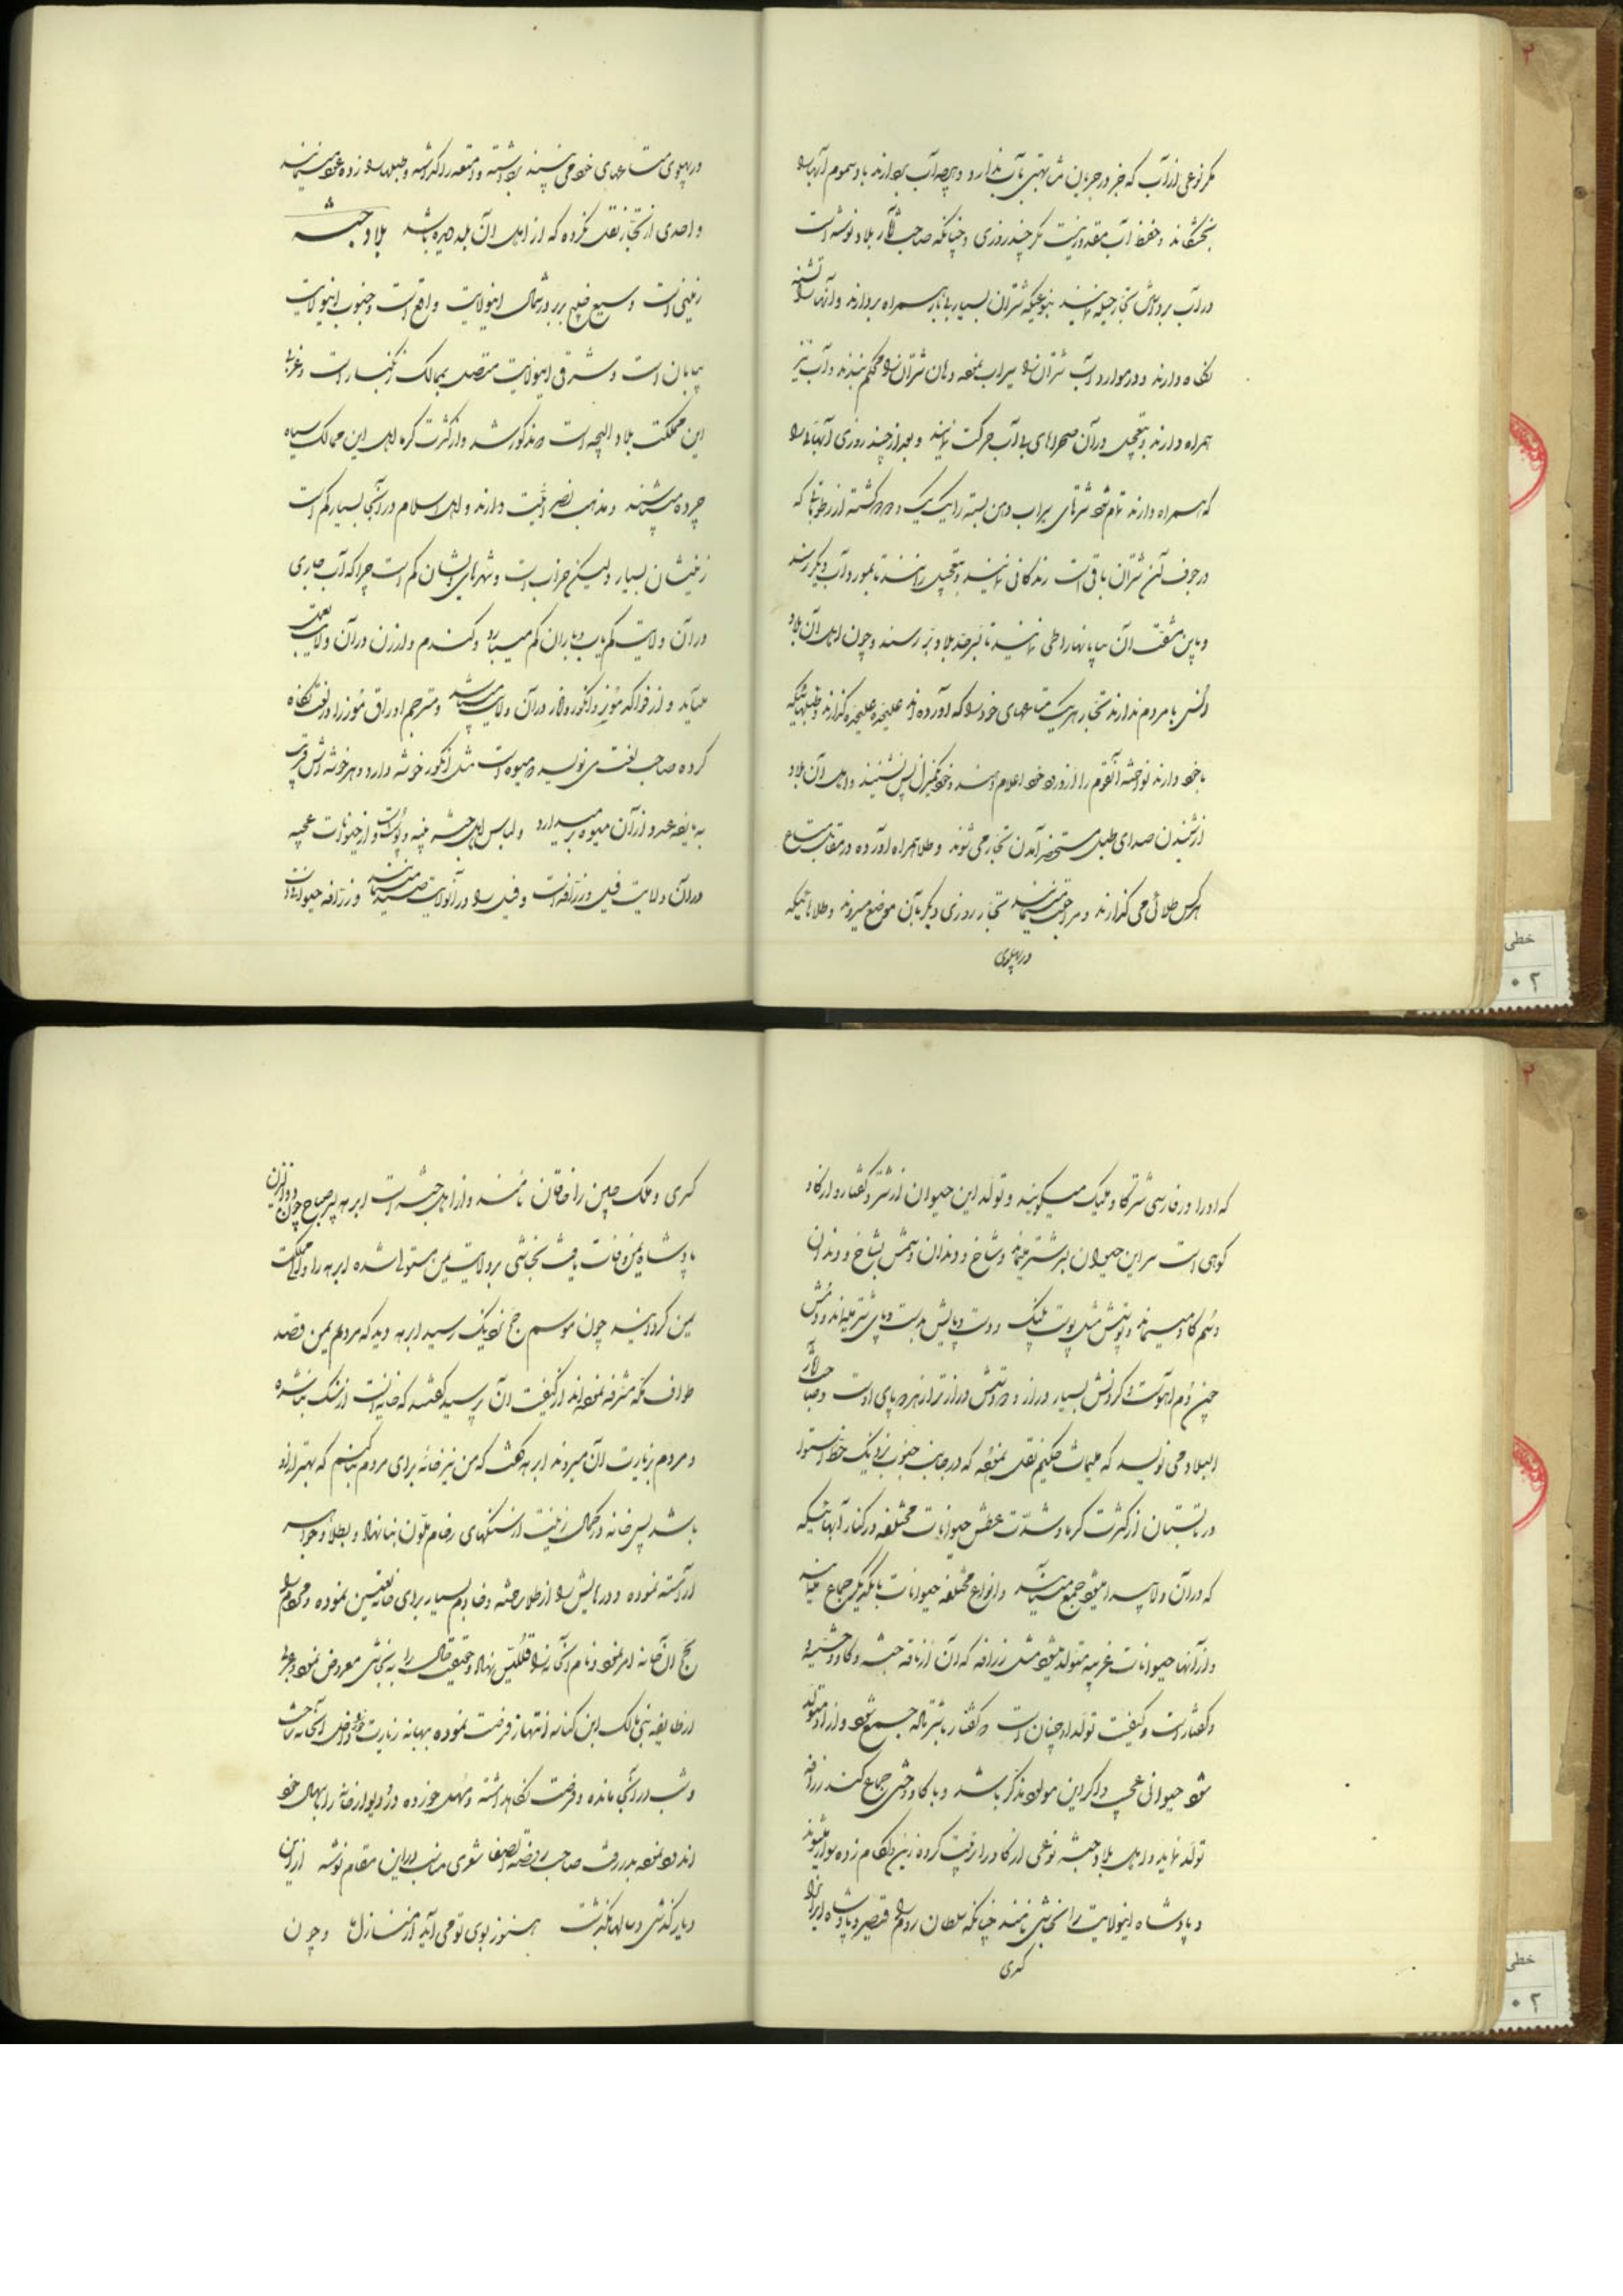 مگر نوعی از آب که جز در جریان مشابهتی بآب ندارد و هرچه آب بردارند باد سموم آنها را
بخشکاند و حفظ آب مقدور نیست مگر چند روزی و چنانکه صاحب آثار بلاد نوشته است
در آب بردن تجار حیله نمایند بنوعیکه شتران بسیار بی بار همراه بردارند و آنها را تشنه
نگاه دارند و در موارد آب شتران را سیراب نموده دهان شتران را محکم ببندند و آب نیز
همراه دارند و بتعجیل در آن صحراهای بی آب حرکت نمایند و بعد از چند روزی آبهائی را
که همراه دارند تمام شود شترهای سیراب دهن بسته را یک یک کشته از رطوباتی که
در جوف آن شتران باقی است زندگانی نمایند و بتعجیل رانند تا بمورد آب دیگر رسند
و باین مشقت آن بیابانها را طی نمایند تا بسرحد بلاد تبر رسند و چون اهل آن بلاد
انس با مردم ندارند تجار هر یک متاعهای خود را که آورده اند علیحده علیحده گذارند و طبلهائیکه
با خود دارند نواخته آنقوم را از ورود خود اعلام دهند و خود بمنزل پس نشینند و اهل آن بلاد
از شنیدن صدای طبل مستحضر آمدن تجار می شوند و طلا همراه آورده در مقابل متاع
هر کس طلائی می گذارند و مراجعت مینمایند تجار روزی دیگر بآن موضع میروند و طلاهائیکه
در پهلوی
در پهلوی متاعهای خود می بینند برداشته و امتعه را گذاشته و طبلها را زده عود مینمایند
و احدی از تجار نقل نکرده که از اهل آن بلد دیده باشد بلاد حبشه
زمینی است وسیع خلیج بربر در شمال اینولایت واقع است و جنوب اینولایت
بیابان است و شرقی اینولایت متصل بممالک زنگبار است و غربی
این مملکت بلاد البجه است مذکور شد و از کثرت گرما اهل این ممالک سیاه
چرده میباشند و مذهب نصرانیت دارند و اهل اسلام در آنجا بسیار کم است
زمینشان بسیار ولیکن خراب است و شهرهای ایشان کم است چرا که آب جاری
در آن ولایت کم یاب و باران کم میبارد و گندم و ارزن در آن ولایت بعمل
میآید و از فواکه موز و انگور و انار در آن ولایت میباشد و مترجم اوراق موز را در لغت نگاه
کرده صاحب لغت می نویسد میوه است مثل انگور خوشه دارد و هر خوشه اش قریب
به عدد از آن میوه برمیدارد و لباس اهل حبشه پنبه و پوست و از حیوانات عجیبه
در آن ولایت فیل و زرافه است و فیل را در آنولایت صید مینمایند و زرافه حیوانی است
که او را در فارسی شترگاو پلنگ میگویند و تولد این حیوان از شتر و کفتار و از گاو
کوهی است سر این حیوان بسر شتر میماند و شاخ و دندان و سمش بشاخ و دندان
و سم گاو میماند و پوستش مثل پوست پلنگ و دست و پایش بدست و پای شتر میماند و دمش
چون دم آهو است و گردنش بسیار دراز و دستش درازتر از پای اوست و صاحب آثار
البلاد می نویسد که طیماث حکیم نقل نموده که در جانب جنوب نزدیک خط استوا
در تابستان از کثرت گرما و شدت عطش حیوانات مختلفه در کنار آبهائیکه
که در آن ولا پیدا میشود جمع میآیند و انواع مختلفه حیوانات با یکدیگر جماع نمایند
و از آنها حیوانات غریبه متولد میشود مثل زرافه که آن از ناقه حبشه و گاو وحشی
و کفتار است و کیفیت تولد او چنان است کفتار با شتر ماده جمع شود و از او متولد
شود حیوانی عجیب و اگر این مولود مذکر باشد و با گاو وحشی جماع کند زرافه
تولد نماید و اهل بلاد حبشه نوعی از گاو را تربیت کرده زین و لگام زده سوار میشوند
و پادشاه اینولایت را نجاشی نامند چنانکه سلطان روم را قیصر و پادشاه ایران را
کسری
کسری و ملک چین را خاقان نامند و از اهل حبشه است ابرهه پسر صباح چون ذونواس
پادشاه یمن وفات یافت نجاشی بر ولایت یمن مستولی شده ابرهه را مملکت
یمن گردانید چون موسم حج نزدیک رسید ابرهه دید که مردم یمن قصد
طواف مکه مشرفه نموده اند از کیفیت آن پرسید گفتند که خانه است از سنگ بنا شده
و مردم بزیارت آن میروند ابرهه گفت که من نیز خانه برای مردم بنا کنم که بهتر از او
باشد پس خانه در کمال زینت از سنگهای رخام ملون بنا نهاد و بطلا و جواهر
آراسته نموده و درهایش را از طلا ریخته و خادم بسیار برای خانه تعیین نموده و مردم را
بحج آن خانه امر نمود و نام آنخانه را قلیس نهاد و حقیقت حال را به نجاشی معروض نمود و عربی
از طایفه بنی مالک ابن کنانه انتهاز فرصت نموده ببهانه زیارت داخل آنخانه ساخت
و شب در آنجا مانده و فرصت نگاهداشته و مسهل خورده در و دیوار خانه را بفضله خود
اندود نموده بدر رفت صاحب روضة الصفا شعری مناسب در این مقام نوشته از این
دیار گذشتی و سالها بگذشت هنوز بوی تو می آید از منازل ها و چون
خطی
۰۲
خطی
۰۲